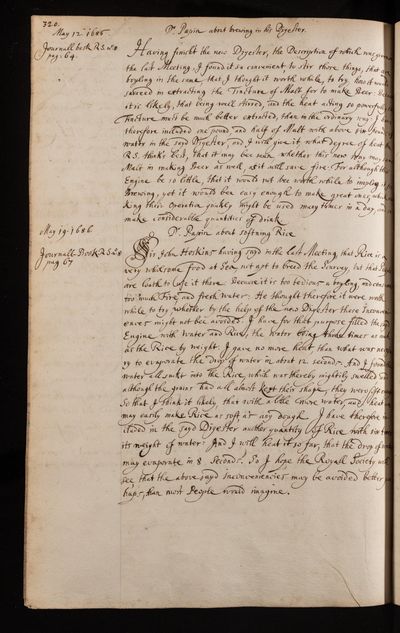 320.
May 12 1686
Dr. Papin about brewing in his Digester.
Journall book R.S. vol 8
pag. 64.
Having finisht the new Digester, the Description of which was given
the last Meeting. I found it so convenient to stir those things, that are
boyling in the same, that I thought it worth while, to try how it would
succeed in extracting the Tincture of Malt for to make Beer.
it is likely, that being well stirred, and the heat acting so powerfully
Tincture must be much better extracted, than in the ordinary way. I
therefore included one pound and half of Malt with above
water in the sayd Digester, and I will give it what degree of heat
R.S. thinks best, that it may bee seen whether this new Way may
Malt in making Beer as well as it will save fire. For although the
Engine be so little, that it would not bee worth while to imploy it
Brewing, yet it would bee easy enough to make great ones
king their Operation quickly might be used many times in a day, and
make considerable quantities of drink
May 19. 1686
Dr. Papin about softning Rice
Journall Book R.S. vol 8
pag 67
Sir John Hoskins having sayd in the last Meeting, that Rice is a
very wholsome food at Sea, not apt to breed the Scurvey, but that
are loath to use it there because it is too tedious a boyling, and
too much Fire, and fresh water. He thought therefore it were worth
while to try whether by the help of the new Digester these Inconveni
ences might not bee avoided. I have for that purpose filled the sayd
Engine with Water and Rice, the water being three times as much
as the Rice by weight. I gave no more heat than what was necessa
ry to evaporate the drop of water in about 12 seconds. And I found
water all sunk into the Rice which was thereby mightily swelled
although the grains had all almost kept their shape, they were
So that, I think it likely that with a little more water, and heat
may easily make Rice as soft as any dough. I have therefore in
cluded in the sayd Digester another quantity of Rice with
its weight of water. And I will heat it so far, that the drop of water
may evaporate in 8 Seconds. So I hope the Royall Society will
see that the above sayd Inconveniencies may be avoided better
haps, than most People would imagine.